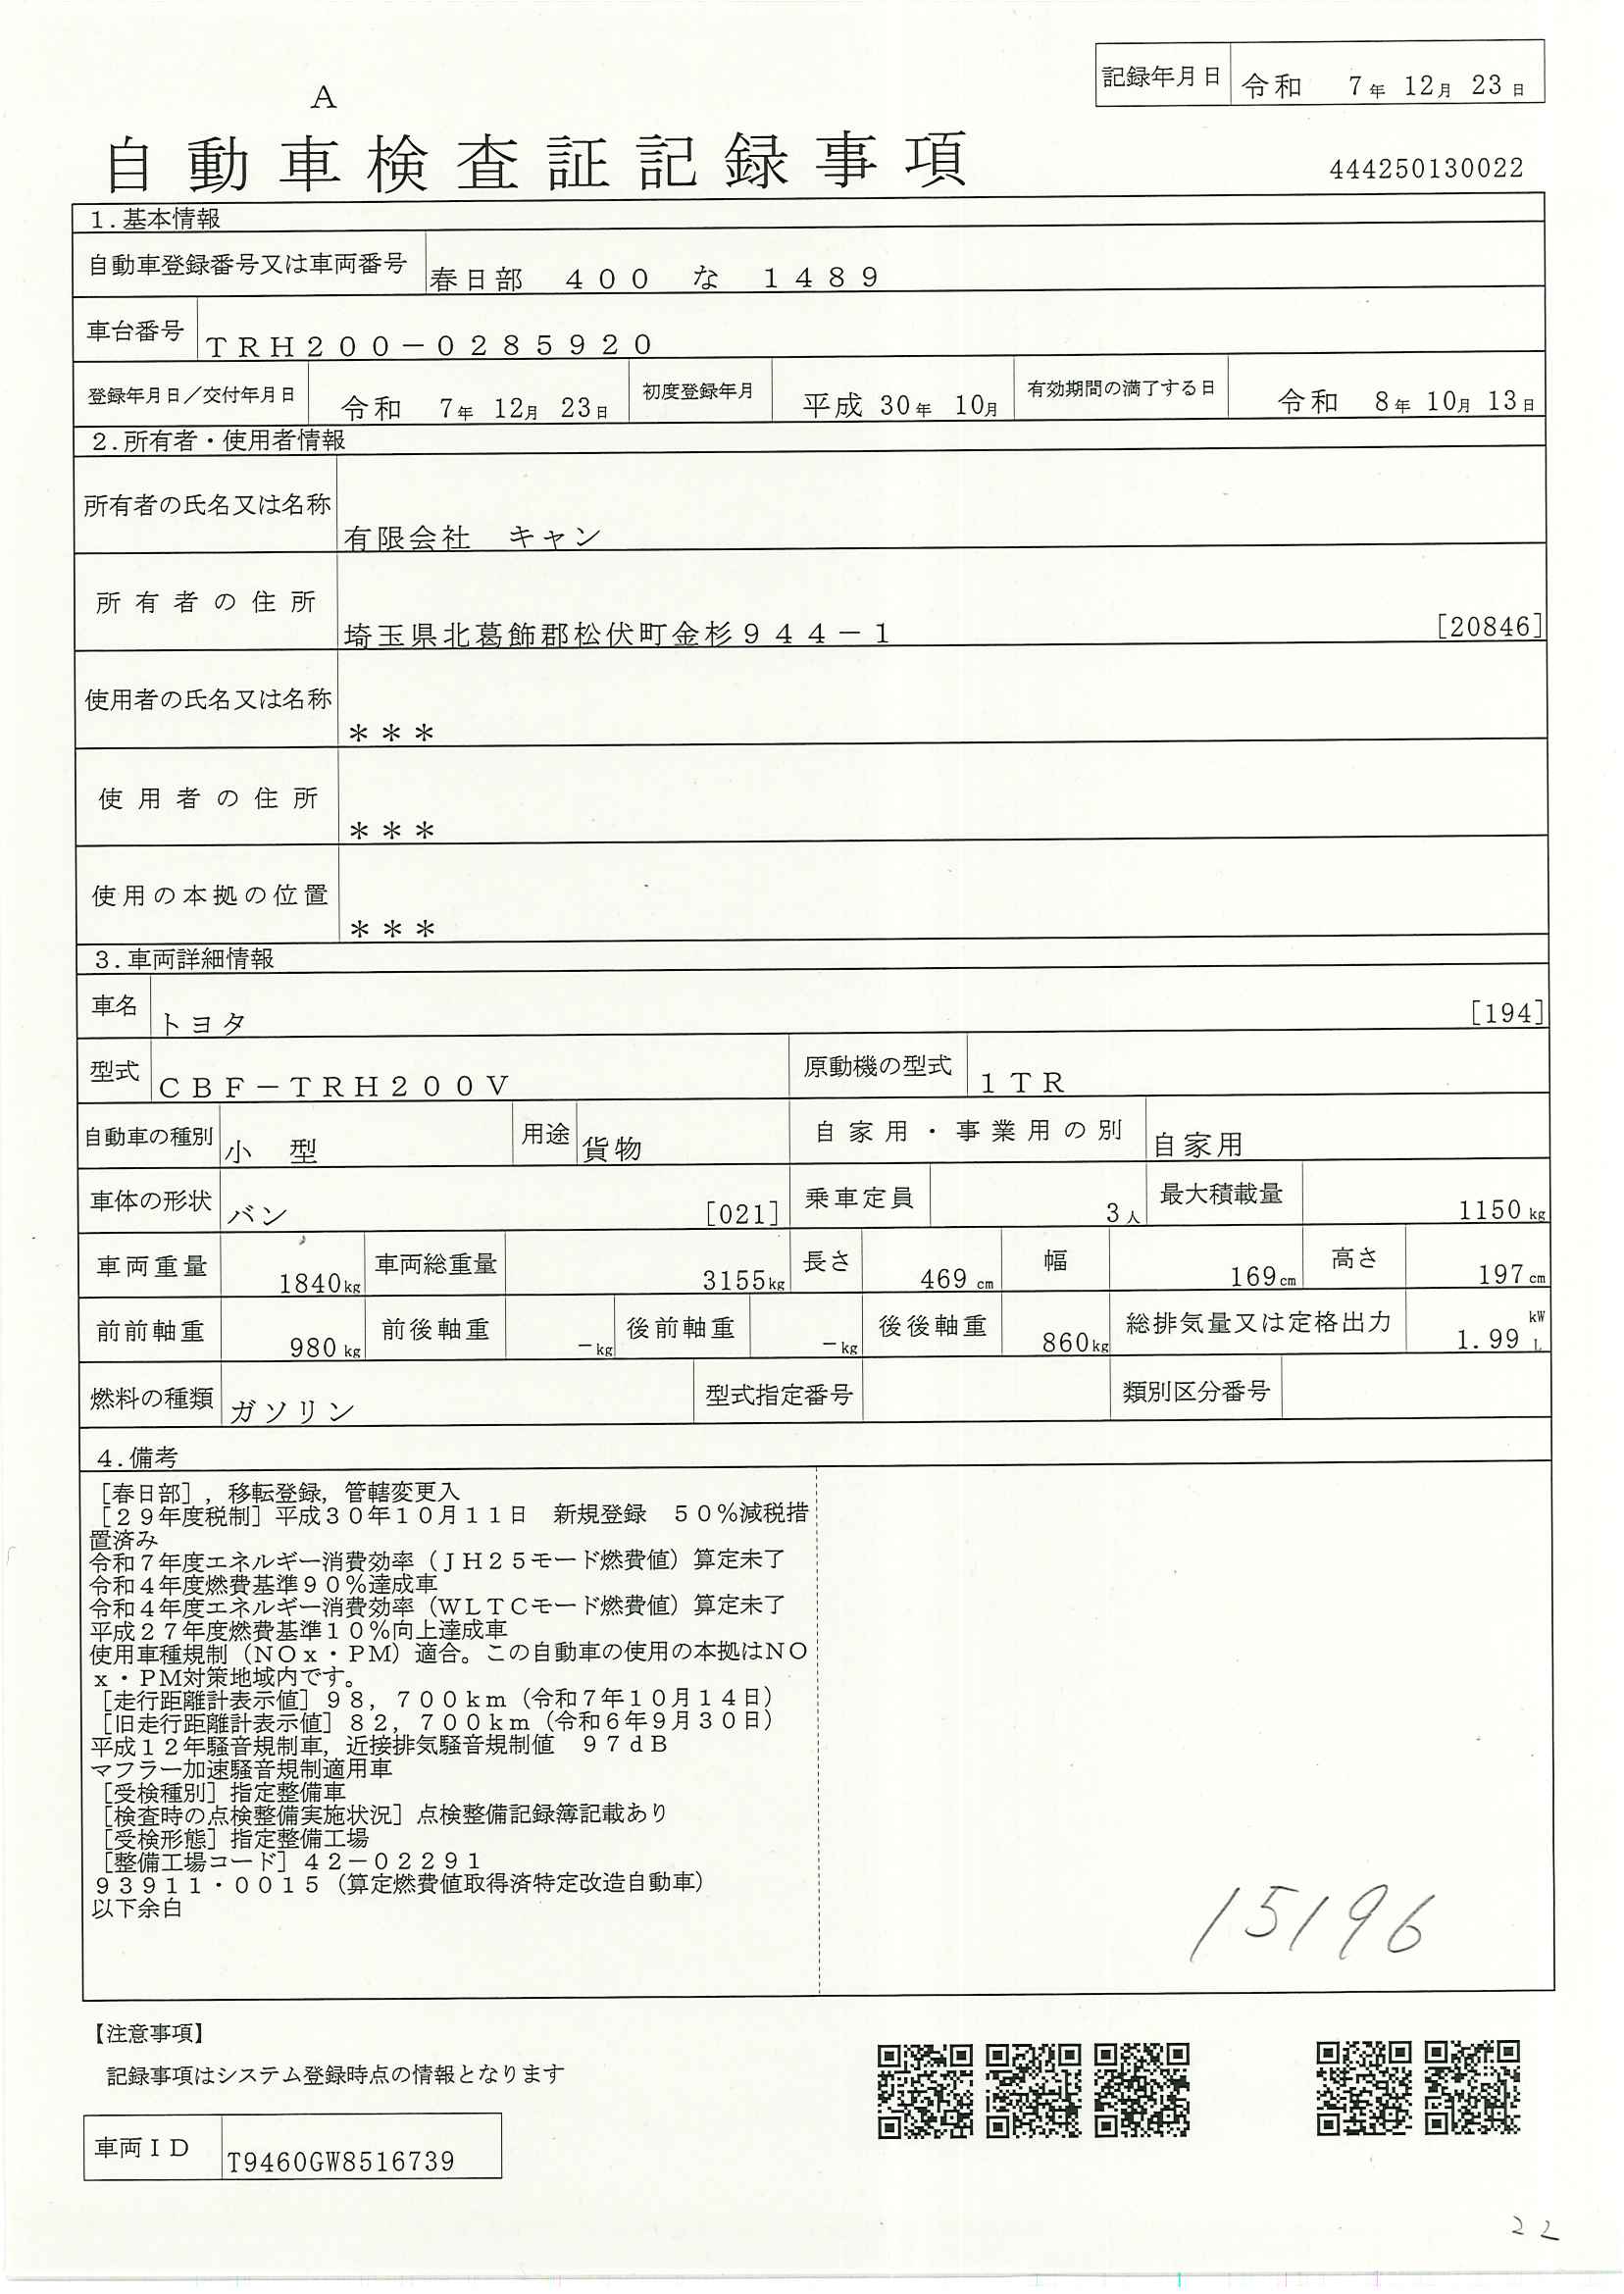 記録年月日 令和 7年 12月 23日
A
自動車検査証記録事項
444250130022
1.基本情報
自動車登録番号又は車両番号 春日部 400 な 1489
車台番号 TRH200-0285920
登録年月日/交付年月日 令和 7年 12月 23日 初度登録年月 平成 30年 10月 有効期間の満了する日 令和 8年 10月 13日
2.所有者・使用者情報
所有者の氏名又は名称 有限会社 キャン
所有者の住所 埼玉県北葛飾郡松伏町金杉944-1 [20846]
使用者の氏名又は名称 ***
使用者の住所 ***
使用の本拠の位置 ***
3.車両詳細情報
車名 トヨタ [194]
型式 CBF-TRH200V 原動機の型式 1TR
自動車の種別 小 型 用途 貨物 自家用・事業用の別 自家用
車体の形状 バン [021] 乗車定員 3人 最大積載量 1150kg
車両重量 1840kg 車両総重量 3155kg 長さ 469cm 幅 169cm 高さ 197cm
前前軸重 980kg 前後軸重 -kg 後前軸重 -kg 後後軸重 860kg 総排気量又は定格出力 1.99 kW L
燃料の種類 ガソリン 型式指定番号 類別区分番号
4.備考
[春日部],移転登録,管轄変更入
[29年度税制]平成30年10月11日 新規登録 50%減税措
置済み
令和7年度エネルギー消費効率(JH25モード燃費値)算定未了
令和4年度燃費基準90%達成車
令和4年度エネルギー消費効率(WLTCモード燃費値)算定未了
平成27年度燃費基準10%向上達成車
使用車種規制(NOx・PM)適合。この自動車の使用の本拠はNO
x・PM対策地域内です。
[走行距離計表示値]98,700km(令和7年10月14日)
[旧走行距離計表示値]82,700km(令和6年9月30日)
平成12年騒音規制車,近接排気騒音規制値 97dB
マフラー加速騒音規制適用車
[受検種別]指定整備車
[検査時の点検整備実施状況]点検整備記録簿記載あり
[受検形態]指定整備工場
[整備工場コード]42-02291
93911・0015(算定燃費値取得済特定改造自動車)
以下余白
15196
【注意事項】
記録事項はシステム登録時点の情報となります
車両ID T9460GW8516739
22